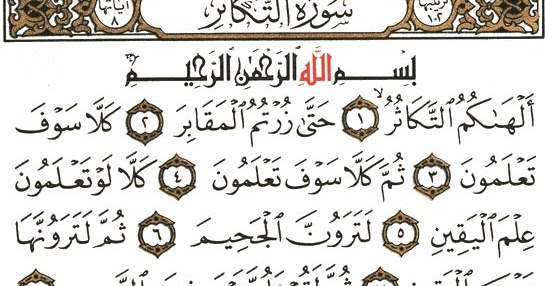 ترتيبها ١٠٢ سورة التكاثر آياتها ٨
بِسْمِ ٱللَّهِ ٱلرَّحْمَٰنِ ٱلرَّحِيمِ
أَلْهَىٰكُمُ ٱلتَّكَاثُرُ ١ حَتَّىٰ زُرْتُمُ ٱلْمَقَابِرَ ٢ كَلَّا سَوْفَ
تَعْلَمُونَ ٣ ثُمَّ كَلَّا سَوْفَ تَعْلَمُونَ ٤ كَلَّا لَوْ تَعْلَمُونَ
عِلْمَ ٱلْيَقِينِ ٥ لَتَرَوُنَّ ٱلْجَحِيمَ ٦ ثُمَّ لَتَرَوُنَّهَا